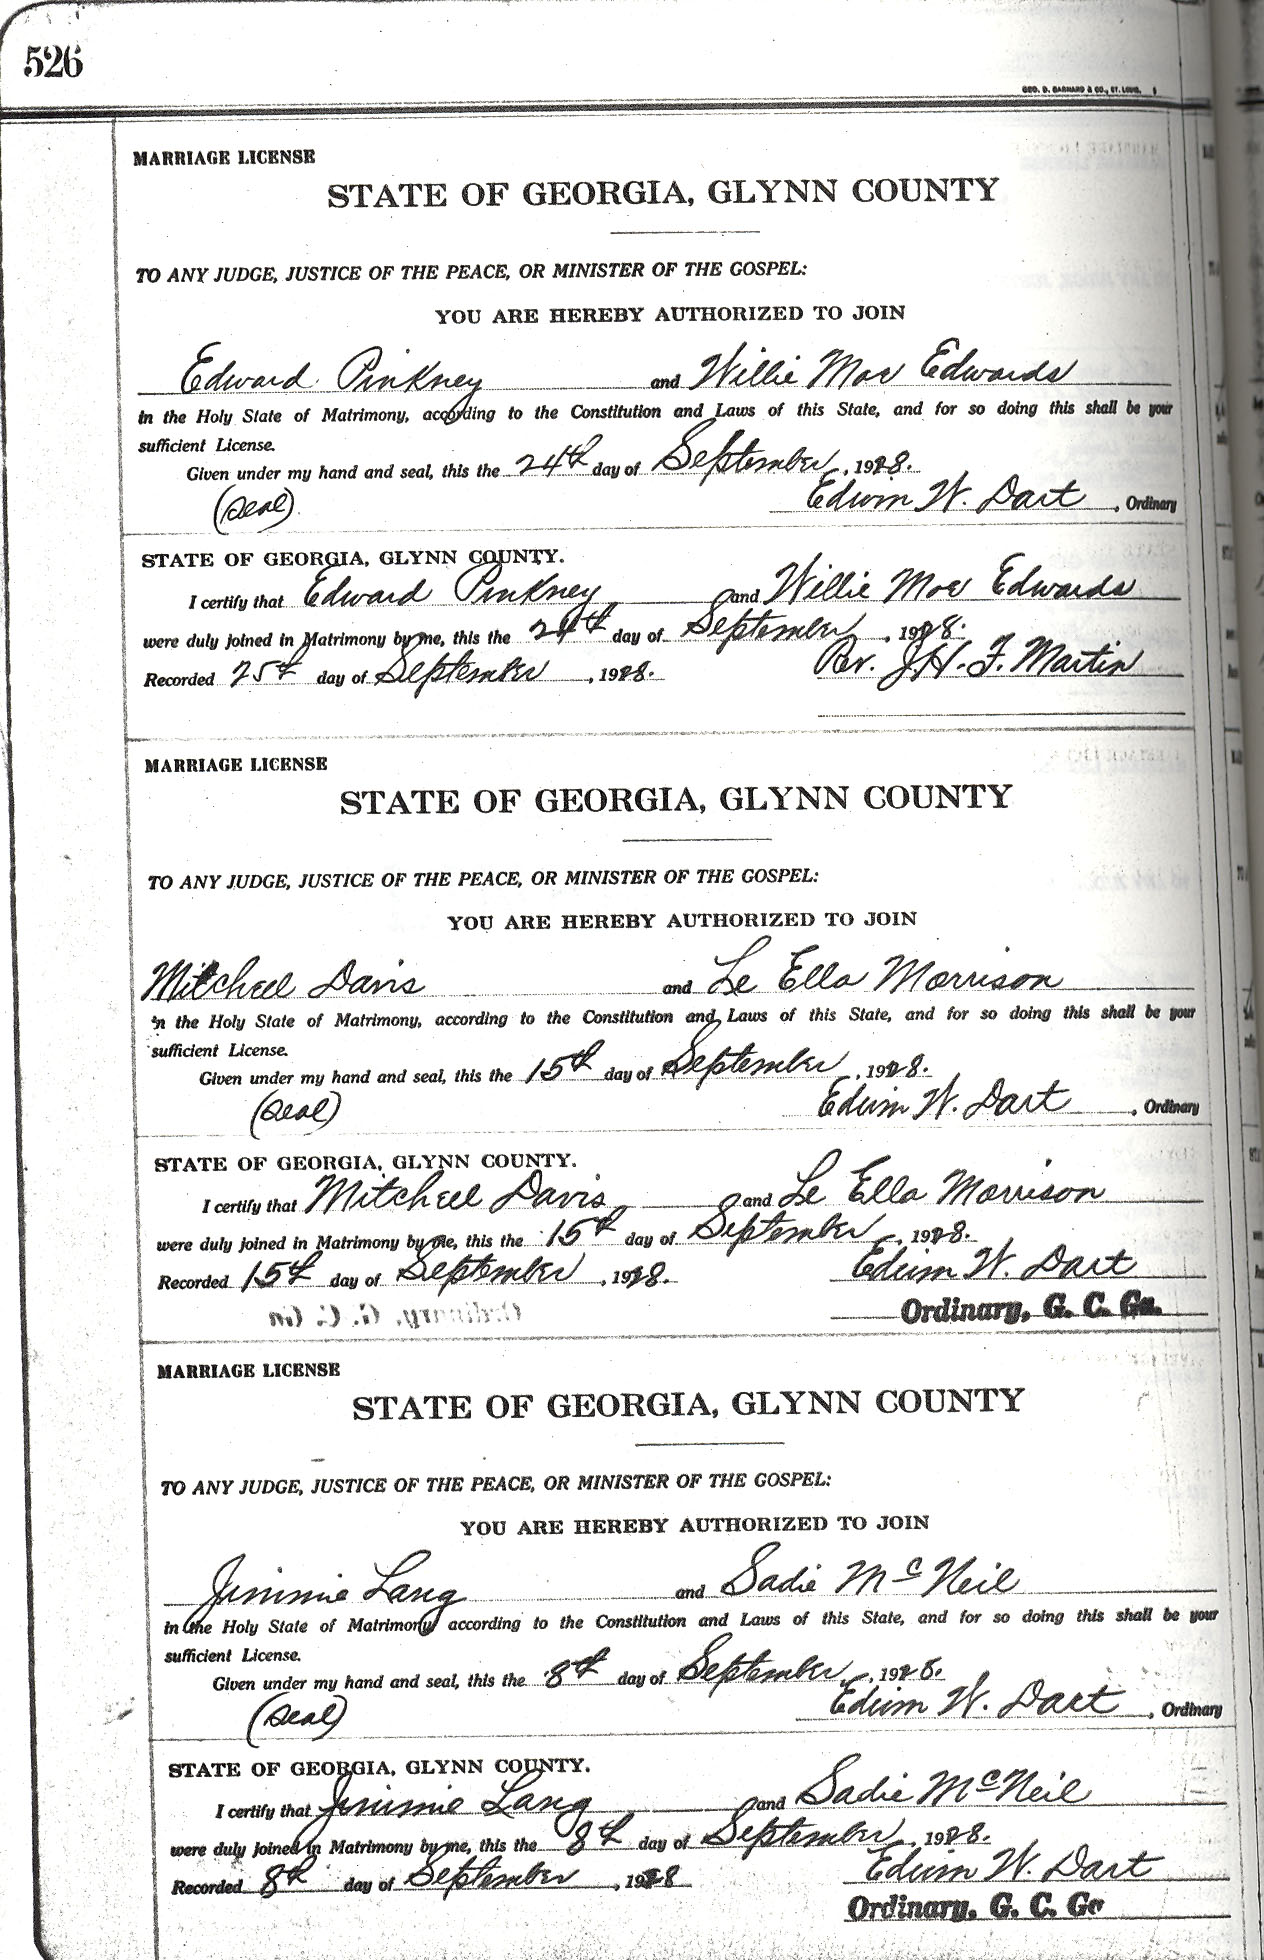 526
GEO. D. BARNARD & CO., ST. LOUIS.
MARRIAGE LICENSE
STATE OF GEORGIA, GLYNN COUNTY
TO ANY JUDGE, JUSTICE OF THE PEACE, OR MINISTER OF THE GOSPEL:
YOU ARE HEREBY AUTHORIZED TO JOIN
Edward Pinkney and Willie Mae Edwards
in the Holy State of Matrimony, according to the Constitution and Laws of this State, and for so doing this shall be your
sufficient License.
Given under my hand and seal, this the 24th day of September, 1928.
(Seal) Edwin W. Dart, Ordinary
STATE OF GEORGIA, GLYNN COUNTY.
I certify that Edward Pinkney and Willie Mae Edwards
were duly joined in Matrimony by me, this the 24th day of September, 1928.
Recorded 25th day of September, 1928. Rev. J.H. F. Martin
MARRIAGE LICENSE
STATE OF GEORGIA, GLYNN COUNTY
TO ANY JUDGE, JUSTICE OF THE PEACE, OR MINISTER OF THE GOSPEL:
YOU ARE HEREBY AUTHORIZED TO JOIN
Mitchell Davis and Le Ella Morrison
in the Holy State of Matrimony, according to the Constitution and Laws of this State, and for so doing this shall be your
sufficient License.
Given under my hand and seal, this the 15th day of September, 1928.
(Seal) Edwin W. Dart, Ordinary
STATE OF GEORGIA, GLYNN COUNTY.
I certify that Mitchell Davis and Le Ella Morrison
were duly joined in Matrimony by me, this the 15th day of September, 1928.
Recorded 15th day of September, 1928. Edwin W. Dart
Ordinary, G. C. Ga.
MARRIAGE LICENSE
STATE OF GEORGIA, GLYNN COUNTY
TO ANY JUDGE, JUSTICE OF THE PEACE, OR MINISTER OF THE GOSPEL:
YOU ARE HEREBY AUTHORIZED TO JOIN
Jimmie Lang and Sadie McNeil
in the Holy State of Matrimony, according to the Constitution and Laws of this State, and for so doing this shall be your
sufficient License.
Given under my hand and seal, this the 8th day of September, 1928.
(Seal) Edwin W. Dart, Ordinary
STATE OF GEORGIA, GLYNN COUNTY.
I certify that Jimmie Lang and Sadie McNeil
were duly joined in Matrimony by me, this the 8th day of September, 1928.
Recorded 8th day of September, 1928 Edwin W. Dart
Ordinary, G. C. Ga